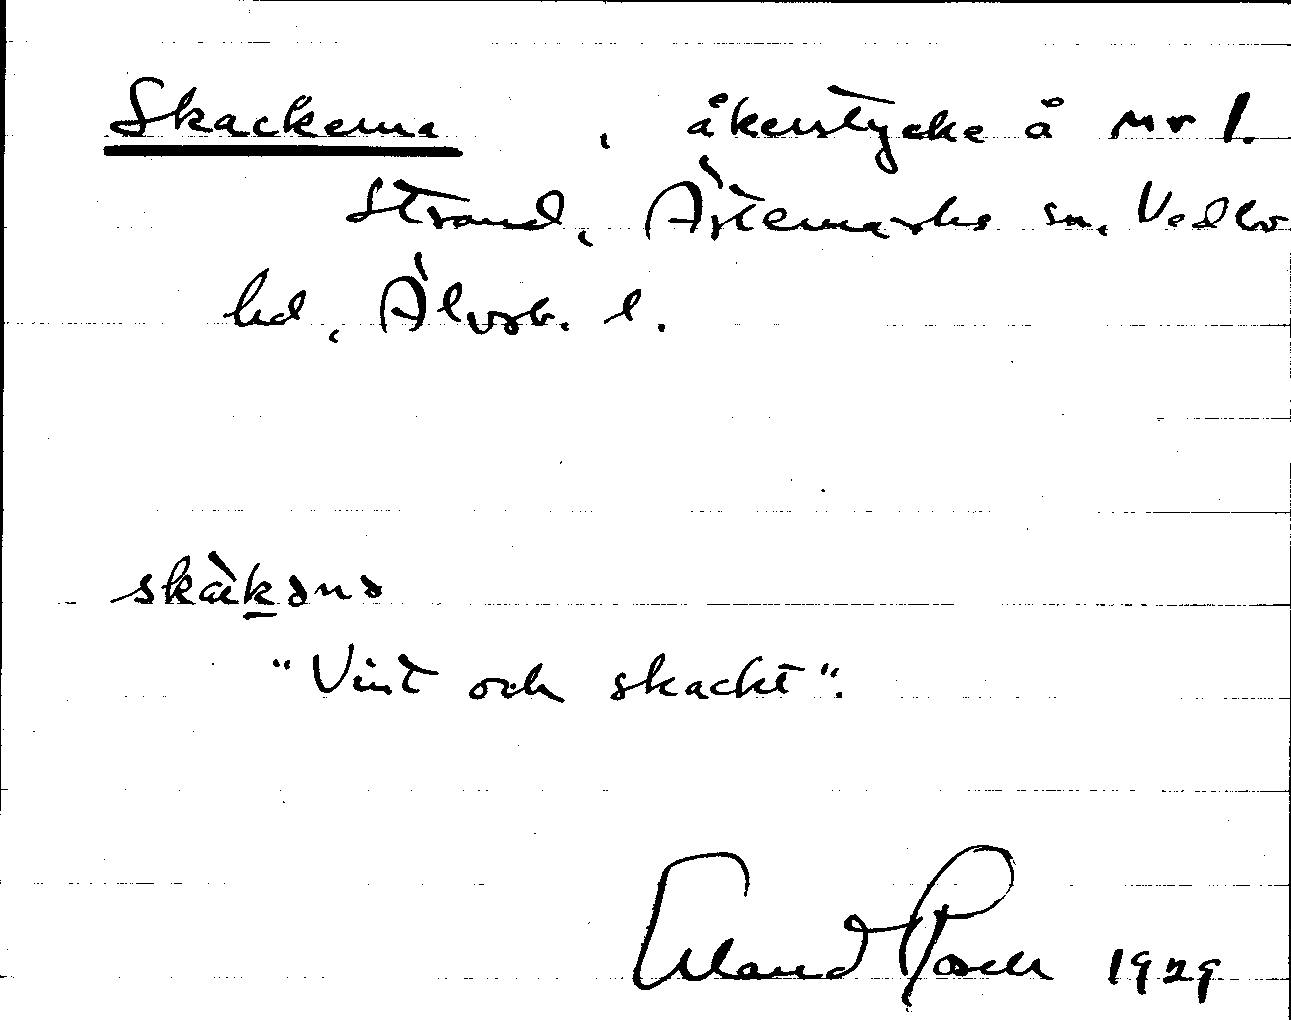 Skackerna , åkerstycke å nr 1.
Strand, Ärtemarks sn, Vedbo
hd, Älvsb. l.
skàkənə
"Vint och skackt".
Erland Rosell 1929